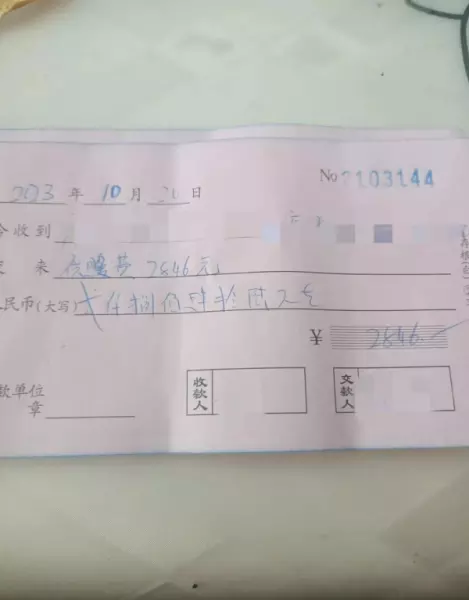 2023 年 10 月 日
No 2103144
收到
来 供暖费 2846元
民币(大写) 贰仟捌佰肆拾陆元
¥ 2846
款单位
章
收款人
交款人